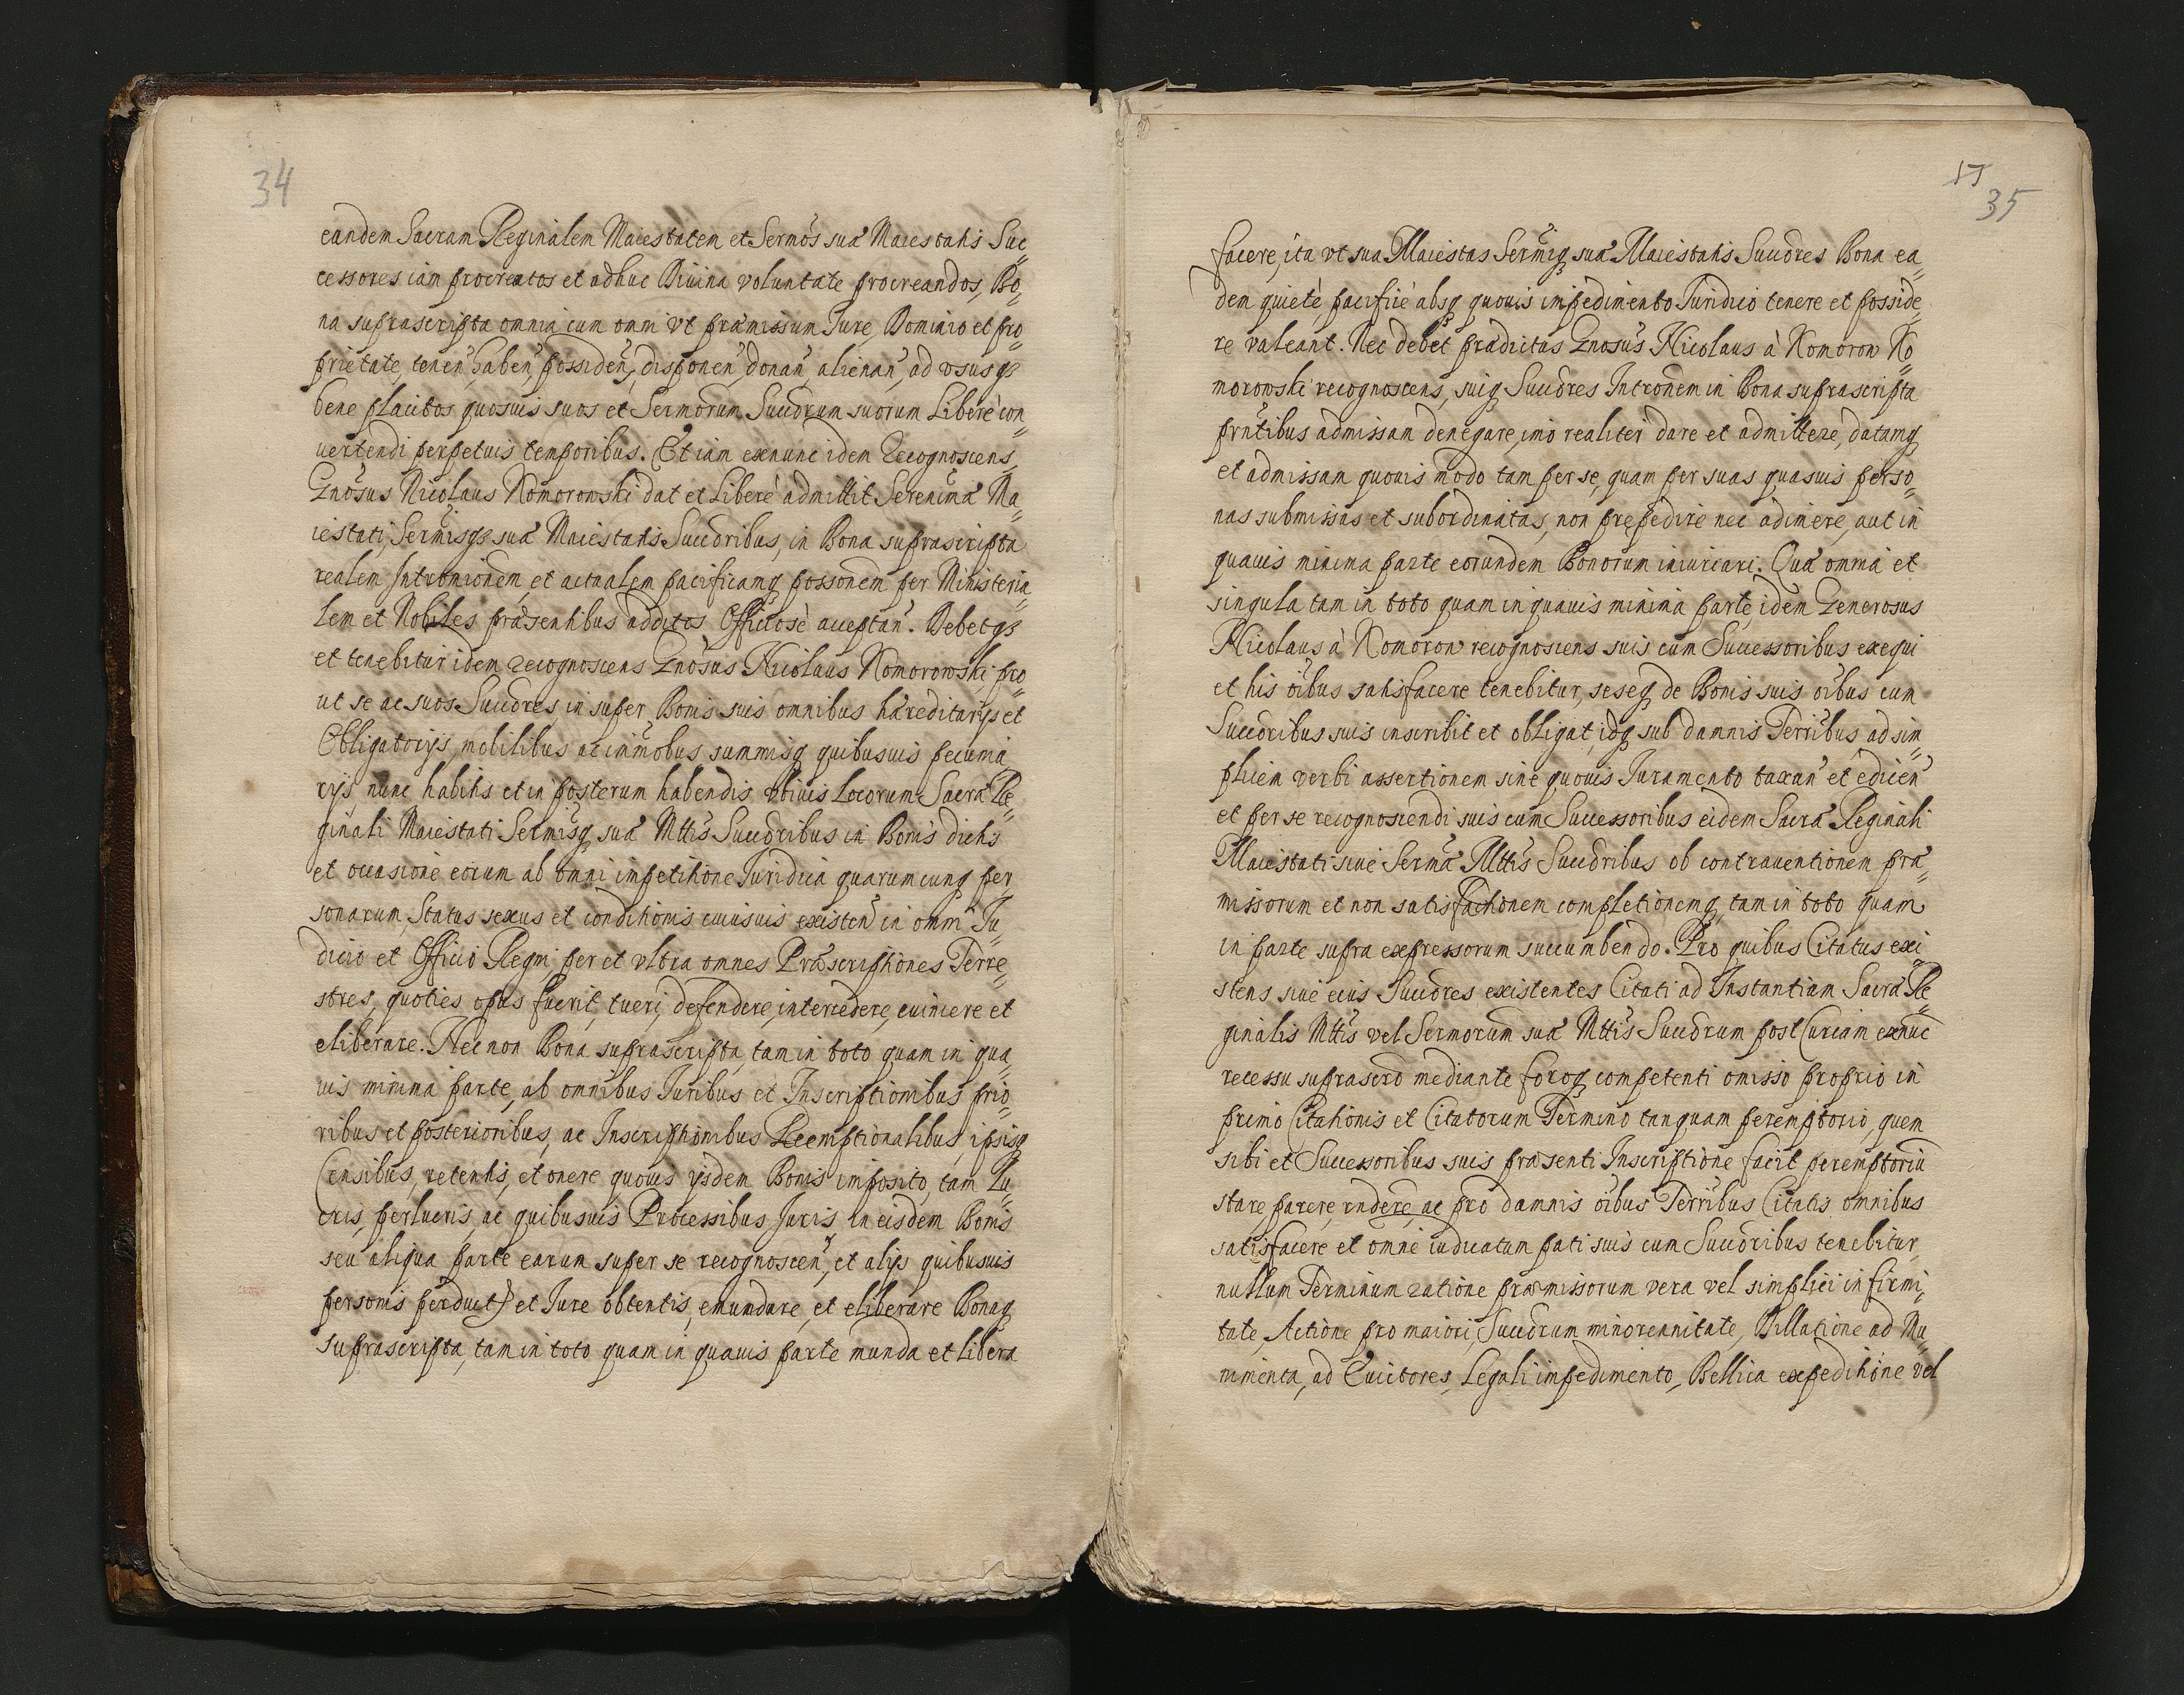 34
eandem Sacram Reginalem Maiestatem et Sermos suæ Maiestatis Suc=
cessores iam procreatos et adhuc Diuina voluntate procreandos, Bo=
na suprascripta omnia cum omni vt præmissum Jure, Dominio et pro=
prietate, tenen, haben, possiden, disponen, donan, alienan, ad vsusqz
bene placitos quosuis suos et Sermorum Succorum suorum Liberè con=
uertendi perpetuis temporibus. Et iam exnunc idem Recognoscens
Gnosus Nicolaus Komorowski dat et Liberè admittit Serenimæ Ma=
iestati, Sermisqz suæ Maiestatis Succoribus, in Bona suprascripta
realem Intromionem, et actualem pacificamq possonem per Ministeria=
lem et Nobiles præsentibus additos Officiosè acceptan. Debetqz
et tenebitur idem recognoscens Gnosus Nicolaus Komorowski, pro=
ut se ac suos Succores, in super Bonis suis omnibus hæreditarijs et
Obligatorijs, mobilibus ac immobus, summisq quibusuis pecunia
rijs, nunc habitis et in posterum habendis vbiuis Locorum Sacræ Re=
ginali Maiestati Sermisq suæ Mttis Succoribus in Bonis dictis
et occasione eorum ab omni impetitione Juridica quarumcunq per=
sonarum, Status sexus et conditionis cuiusuis existen in omni Ju=
dicio et Officio Regni per et vltra omnes Præscriptiones Terre=
stres, quoties opus fuerit, tueri, defendere, intercedere, euincere et
eliberare. Nec non Bona suprascripta, tam in toto quam in qua=
uis minima parte, ab omnibus Juribus et Inscriptionibus prio=
ribus et posterioribus, ac Inscriptionibus Reemptionalibus, ipsisq
Censibus, retentis, et onere quouis ijsdem Bonis imposito, tam Lu=
cris, perlucris, ac quibusuis Processibus Juris in eisdem Bonis
seu aliqua parte earum super se recognoscen, et alijs quibusuis
personis perduct) et Jure obtentis, emundare, et eliberare Bonaq
suprascripta, tam in toto quam in quauis parte munda et libera
17
35
facere, ita vt sua Maiestas Sermiq suæ Maiestatis Succores Bona ea=
dem quietè, pacificè absq quouis impedimento Juridico tenere et posside=
re valeant. Nec debet prædictus Gnosus Nicolaus à Komorow Ko=
morowski recognoscens, suiq Succores Intronem in Bona suprascripta
prntibus admissam denegare, imò realiter dare et admittere, datamq
et admissam quouis modo tam per se, quam per suas quasuis perso=
nas submissas et subordinatas, non præpedire nec adimere, aut in
quauis minima parte eorundem Bonorum iniuriari. Quæ omnia et
singula tam in toto quam in quauis minima parte, idem Generosus
Nicolaus à Komorow recognoscens suis cum Successoribus exequi
et his oibus satisfacere tenebitur, seseq de Bonis suis oibus cum
Succoribus suis inscribit et obligat, idq sub damnis Terribus ad sim=
plicem verbi assertionem sine quouis Juramento taxan et edicen
et per se recognoscendi suis cum Successoribus eidem Sacræ Reginali
Maiestati siue Sermæ Mttis Succoribus ob contrauentionem præ=
missorum et non satisfactionem completionemq, tam in toto quam
in parte supra expressorum succumbendo. Pro quibus Citatus exi=
stens siue eius Succores existentes Citati ad Instantiam Sacræ Re=
ginalis Mttis vel Sermorum suæ Mttis Succorum post Curiam exnuc
recessu suprascro mediante foroq competenti omisso proprio in
primo Citationis et Citatorum Termino tanquam peremptorio, quem
sibi et Successoribus suis præsenti Inscriptione facit peremptoriu
stare, parere, rndere, ac pro damnis oibus Terribus Citatis omnibus
satisfacere et omne iudicatum pati suis cum Succoribus tenebitur,
nullum Terminum ratione præmissorum vera vel simplici infirmi=
tate, Actione pro maiori, Succorum minorennitate, Dillatione ad Mu=
nimenta, ad Euictores, Legali impedimento, Bellica expeditione vel